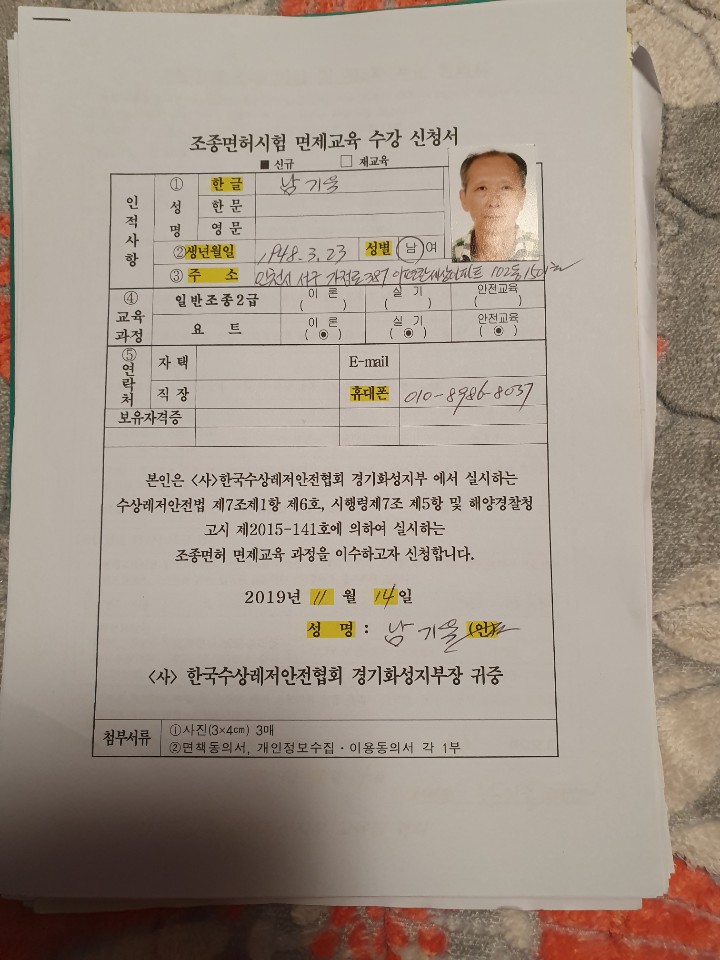 조종면허시험 면제교육 수강 신청서
■ 신규 □ 재교육
인적사항
① 성명 한글 남기울
한문
영문
②생년월일 1948. 3. 23 성별 남 여
③ 주 소 인천시 서구 가정로 387 102동 1501호
④ 교육과정 일반조종2급 이 론 ( ) 실 기 ( ) 안전교육 ( )
요 트 이 론 ( ◉ ) 실 기 ( ◉ ) 안전교육 ( ◉ )
⑤ 연락처 자 택 E-mail
직 장 휴대폰 010-8986-8037
보유자격증
본인은 <사>한국수상레저안전협회 경기화성지부 에서 실시하는
수상레저안전법 제7조제1항 제6호, 시행령제7조 제5항 및 해양경찰청
고시 제2015-141호에 의하여 실시하는
조종면허 면제교육 과정을 이수하고자 신청합니다.
2019년 11 월 14일
성 명 : 남기울 (인)
<사> 한국수상레저안전협회 경기화성지부장 귀중
첨부서류 ①사진(3×4㎝) 3매
②면책동의서, 개인정보수집·이용동의서 각 1부